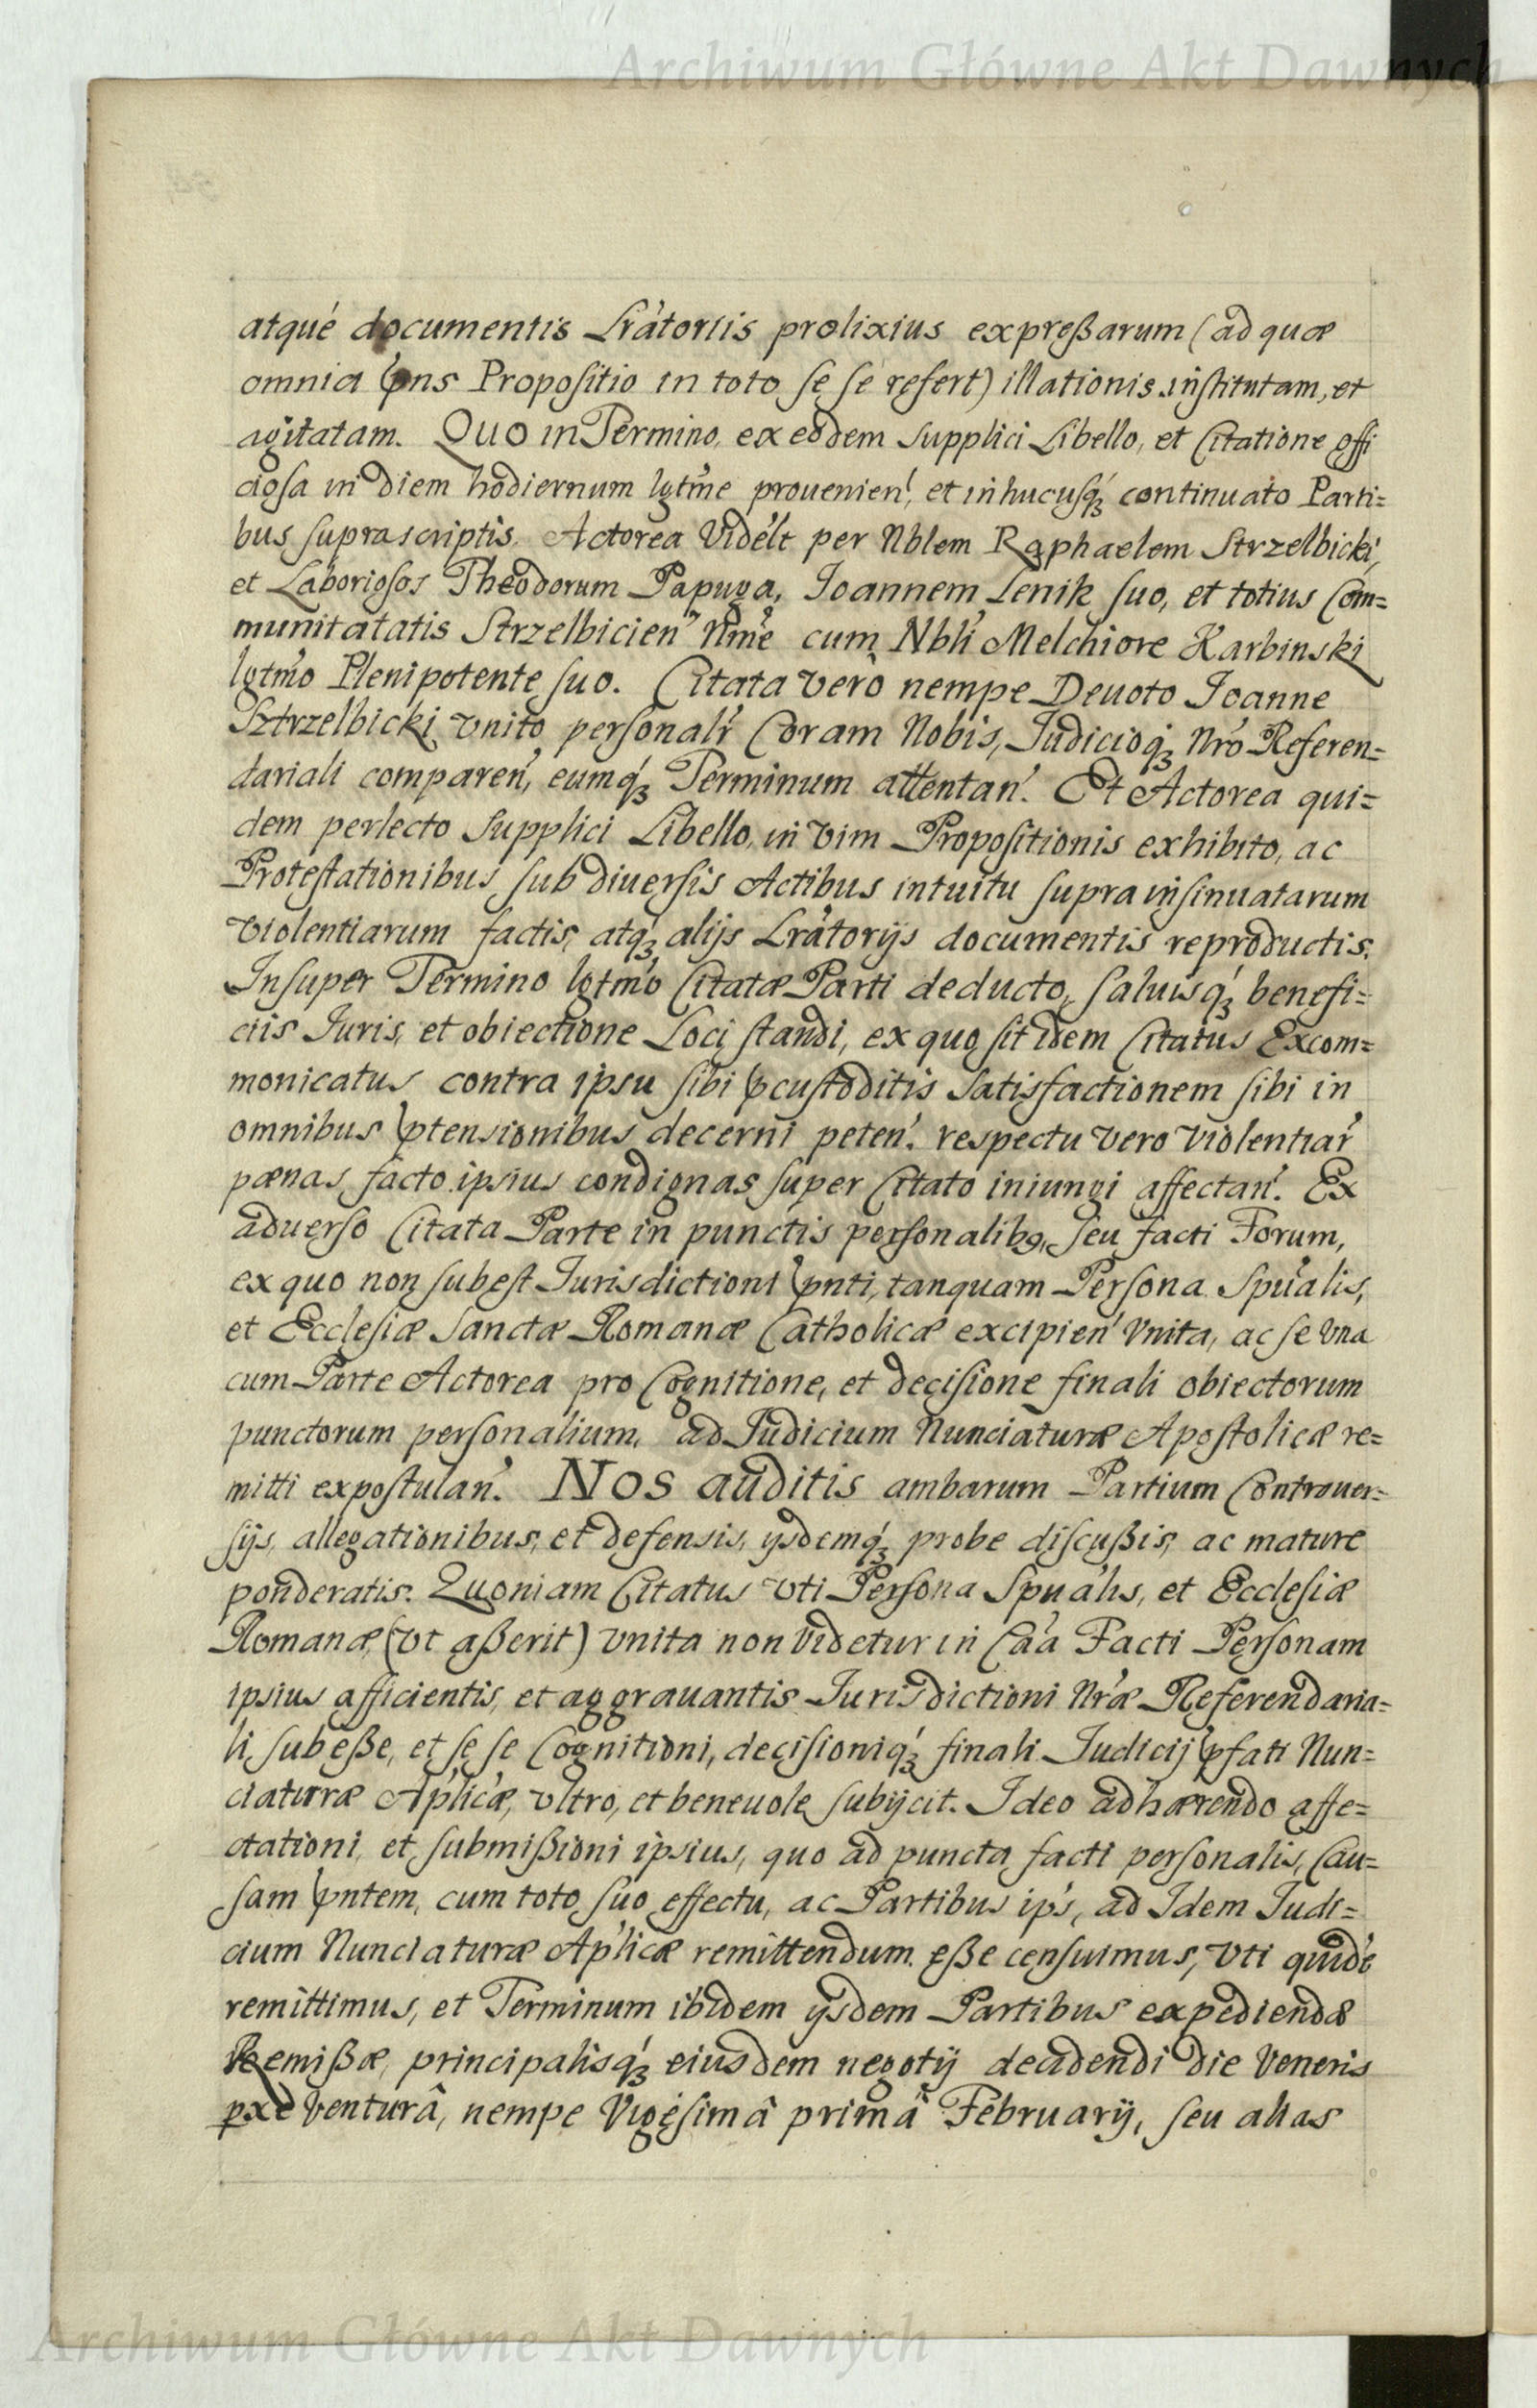 Archiwum Główne Akt Dawnych
atqué documentis Lrátoriis prolixius expreßarum (ad quæ
omnia pns Propositio in toto se se refert) illationis institutam, et
agitatam. Quo in Termino, ex eodem supplici Libello, et Citatione offi
ciosa in diem hodiernum lgtme prouenien', et in hucusq́ꝫ continuato Parti=
bus suprascriptis. Actorea Vidélt per Nblem Raphaelem Strzelbicki,
et Laboriosos Theodorum Papuga, Ioannem Lenik suo, et totius Com=
munitatatis Strzelbicien' Nme cum Nbli Melchiore Karbinski
lgtmo Plenipotente suo. Citata verò nempe Deuoto Ioanne
Sztrzelbicki vnito personalr Coram Nobis, Iudicioq́ꝫ Nro Referen=
dariali comparen', eumq́ꝫ Terminum attentan'. Et Actorea qui=
dem perlecto supplici Libello, in vim Propositionis exhibito, ac
Protestationibus sub diuersis Actibus intuitu supra insinuatarum
violentiarum factis, atq́ꝫ alijs Lrátorijs documentis reproductis.
Insuper Termino lgtmo Citatæ Parti deducto, saluisq́ꝫ benefi=
ciis Iuris, et obiectione Loci standi, ex quo sit idem Citatus Excom=
monicatus contra ipsu sibi pcustoditis satisfactionem sibi in
omnibus ptensionibus decerni peten'. respectu vero violentiar'
pænas facto ipsius condignas super Citato iniungi affectan'. Ex
aduerso Citata Parte in punctis personalibꝯ, seu facti Forum,
ex quo non subest Iurisdictioni pnti, tanquam Persona Spuális,
et Ecclesiæ Sanctæ Romanæ Catholicæ excipien' Vnita, ac se vna
cum Parte Actorea pro Cognitione, et decisione finali obiectorum
punctorum personalium, ad Iudicium Nunciaturæ Apostolicæ re=
mitti expostulan'. Nos auditis ambarum Partium Controuer=
sijs, allegationibus, et defensis, ijsdemq́ꝫ probe discußis, ac mature
ponderatis. Quoniam Citatus vti Persona Spuális, et Ecclesiæ
Romanæ (vt aßerit) vnita non videtur in Caá Facti Personam
ipsius afficientis, et aggrauantis Iurisdictioni Nræ Referendaria=
li subeße, et se se Cognitioni, decisioniq́ꝫ finali Iudicij pfati Nun=
ciaturæ Aplicæ, vltro, et beneuole subijcit. Ideo adhærendo affe=
ctationi, et submißioni ipsius, quo ad puncta facti personalis, Cau=
sam pntem, cum toto suo effectu, ac Partibus ips, ad Idem Iudi=
cium Nunciaturæ Aplicæ remittendum eße censuimus, vti quidé
remittimus, et Terminum ibidem ijsdem Partibus expediendæ
Remißæ, principalisq́ꝫ eiusdem negotij deadendi die Veneris
pxe Venturâ, nempe Vigesimâ primâ February, seu alias
Archiwum Główne Akt Dawnych